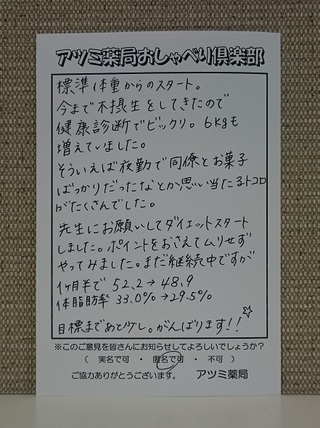 アツミ薬局おしゃべり倶楽部
標準体重からのスタート。
今まで不摂生をしてきたので
健康診断でビックリ。6kgも
増えていました。
そういえば夜勤で同僚とお菓子
ばっかりだったなとか思い当たるトコロ
がたくさんでした。
先生にお願いしてダイエットスタート
しました。ポイントをおさえてムリせず
やってみました。まだ継続中ですが
1ヶ月半で 52.2→48.9
体脂肪率 33.0%→29.5%
目標まであと少し。がんばります!!☆
※このご意見を皆さんにお知らせしてよろしいでしょうか?
( 実名で可 ・ 匿名で可 ・ 不可 )
ご協力ありがとうございます。 アツミ薬局